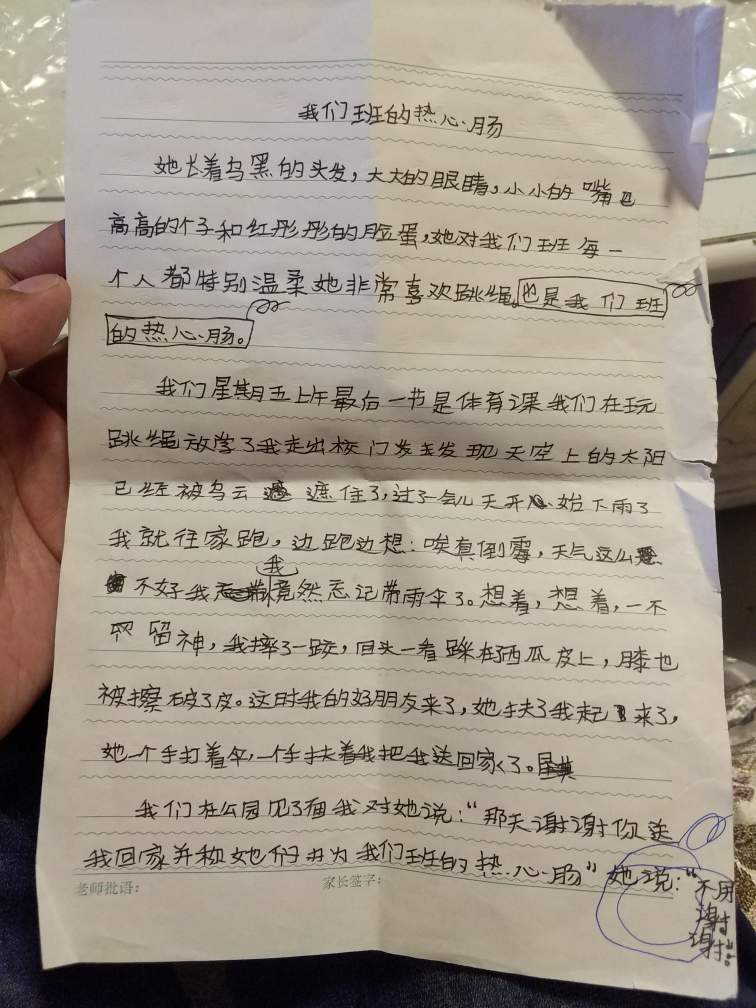 我们班的热心肠
她长着乌黑的头发，大大的眼睛，小小的嘴巴
高高的个子和红彤彤的脸蛋，她对我们班每一
个人都特别温柔她非常喜欢跳绳。也是我们班
的热心肠。
我们星期五上午最后一节是体育课我们在玩
跳绳放学了我走出校门发现天空上的太阳
已经被乌云遮住了，过了一会儿天开始下雨了
我就往家跑，边跑边想：唉真倒霉，天气这么
不好我我竟然忘记带雨伞了。想着，想着，一不
留神，我摔了一跤，回头一看踩在西瓜皮上，膝也
被擦破了皮。这时我的好朋友来了，她扶了我起来了，
她一个手打着伞，一个手扶着我把我送回家了。
我们在公园见了面我对她说：“那天谢谢你送
我回家并称她们为我们班的热心肠”她说：“不用
谢谢！
老师批语：
家长签字：